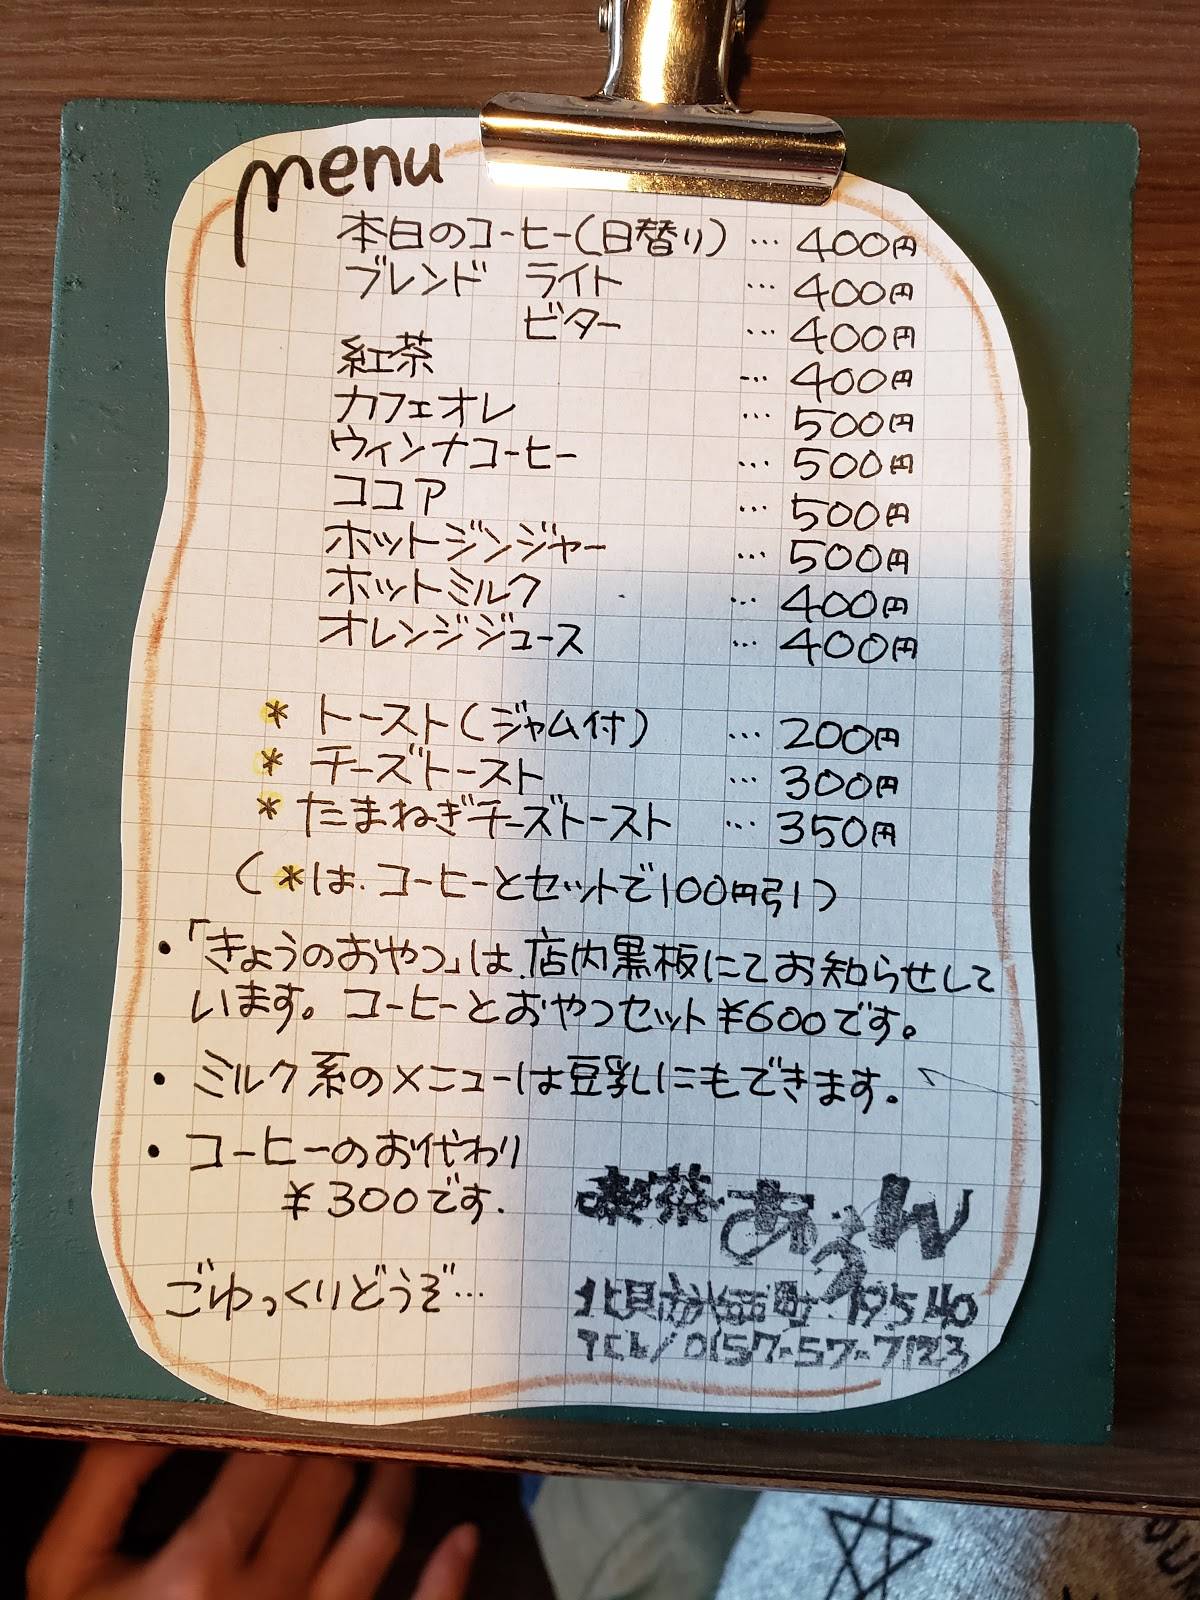 menu
本日のコーヒー(日替り) … 400円
ブレンド ライト … 400円
ビター … 400円
紅茶 … 400円
カフェオレ … 500円
ウィンナコーヒー … 500円
ココア … 500円
ホットジンジャー … 500円
ホットミルク … 400円
オレンジジュース … 400円
* トースト(ジャム付) … 200円
* チーズトースト … 300円
* たまねぎチーズトースト … 350円
(*は、コーヒーとセットで100円引)
・「きょうのおやつ」は、店内黒板にてお知らせして
います。コーヒーとおやつセット¥600です。
・ミルク系のメニューは豆乳にもできます。
・コーヒーのお代わり
¥300です.
ごゆっくりどうぞ…
喫茶
北見市 町
TEL/0157-57-7123